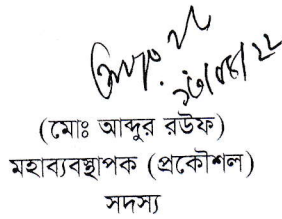 (মোঃ আব্দুর রউফ)
মহাব্যবস্থাপক (প্রকৌশল)
সদস্য